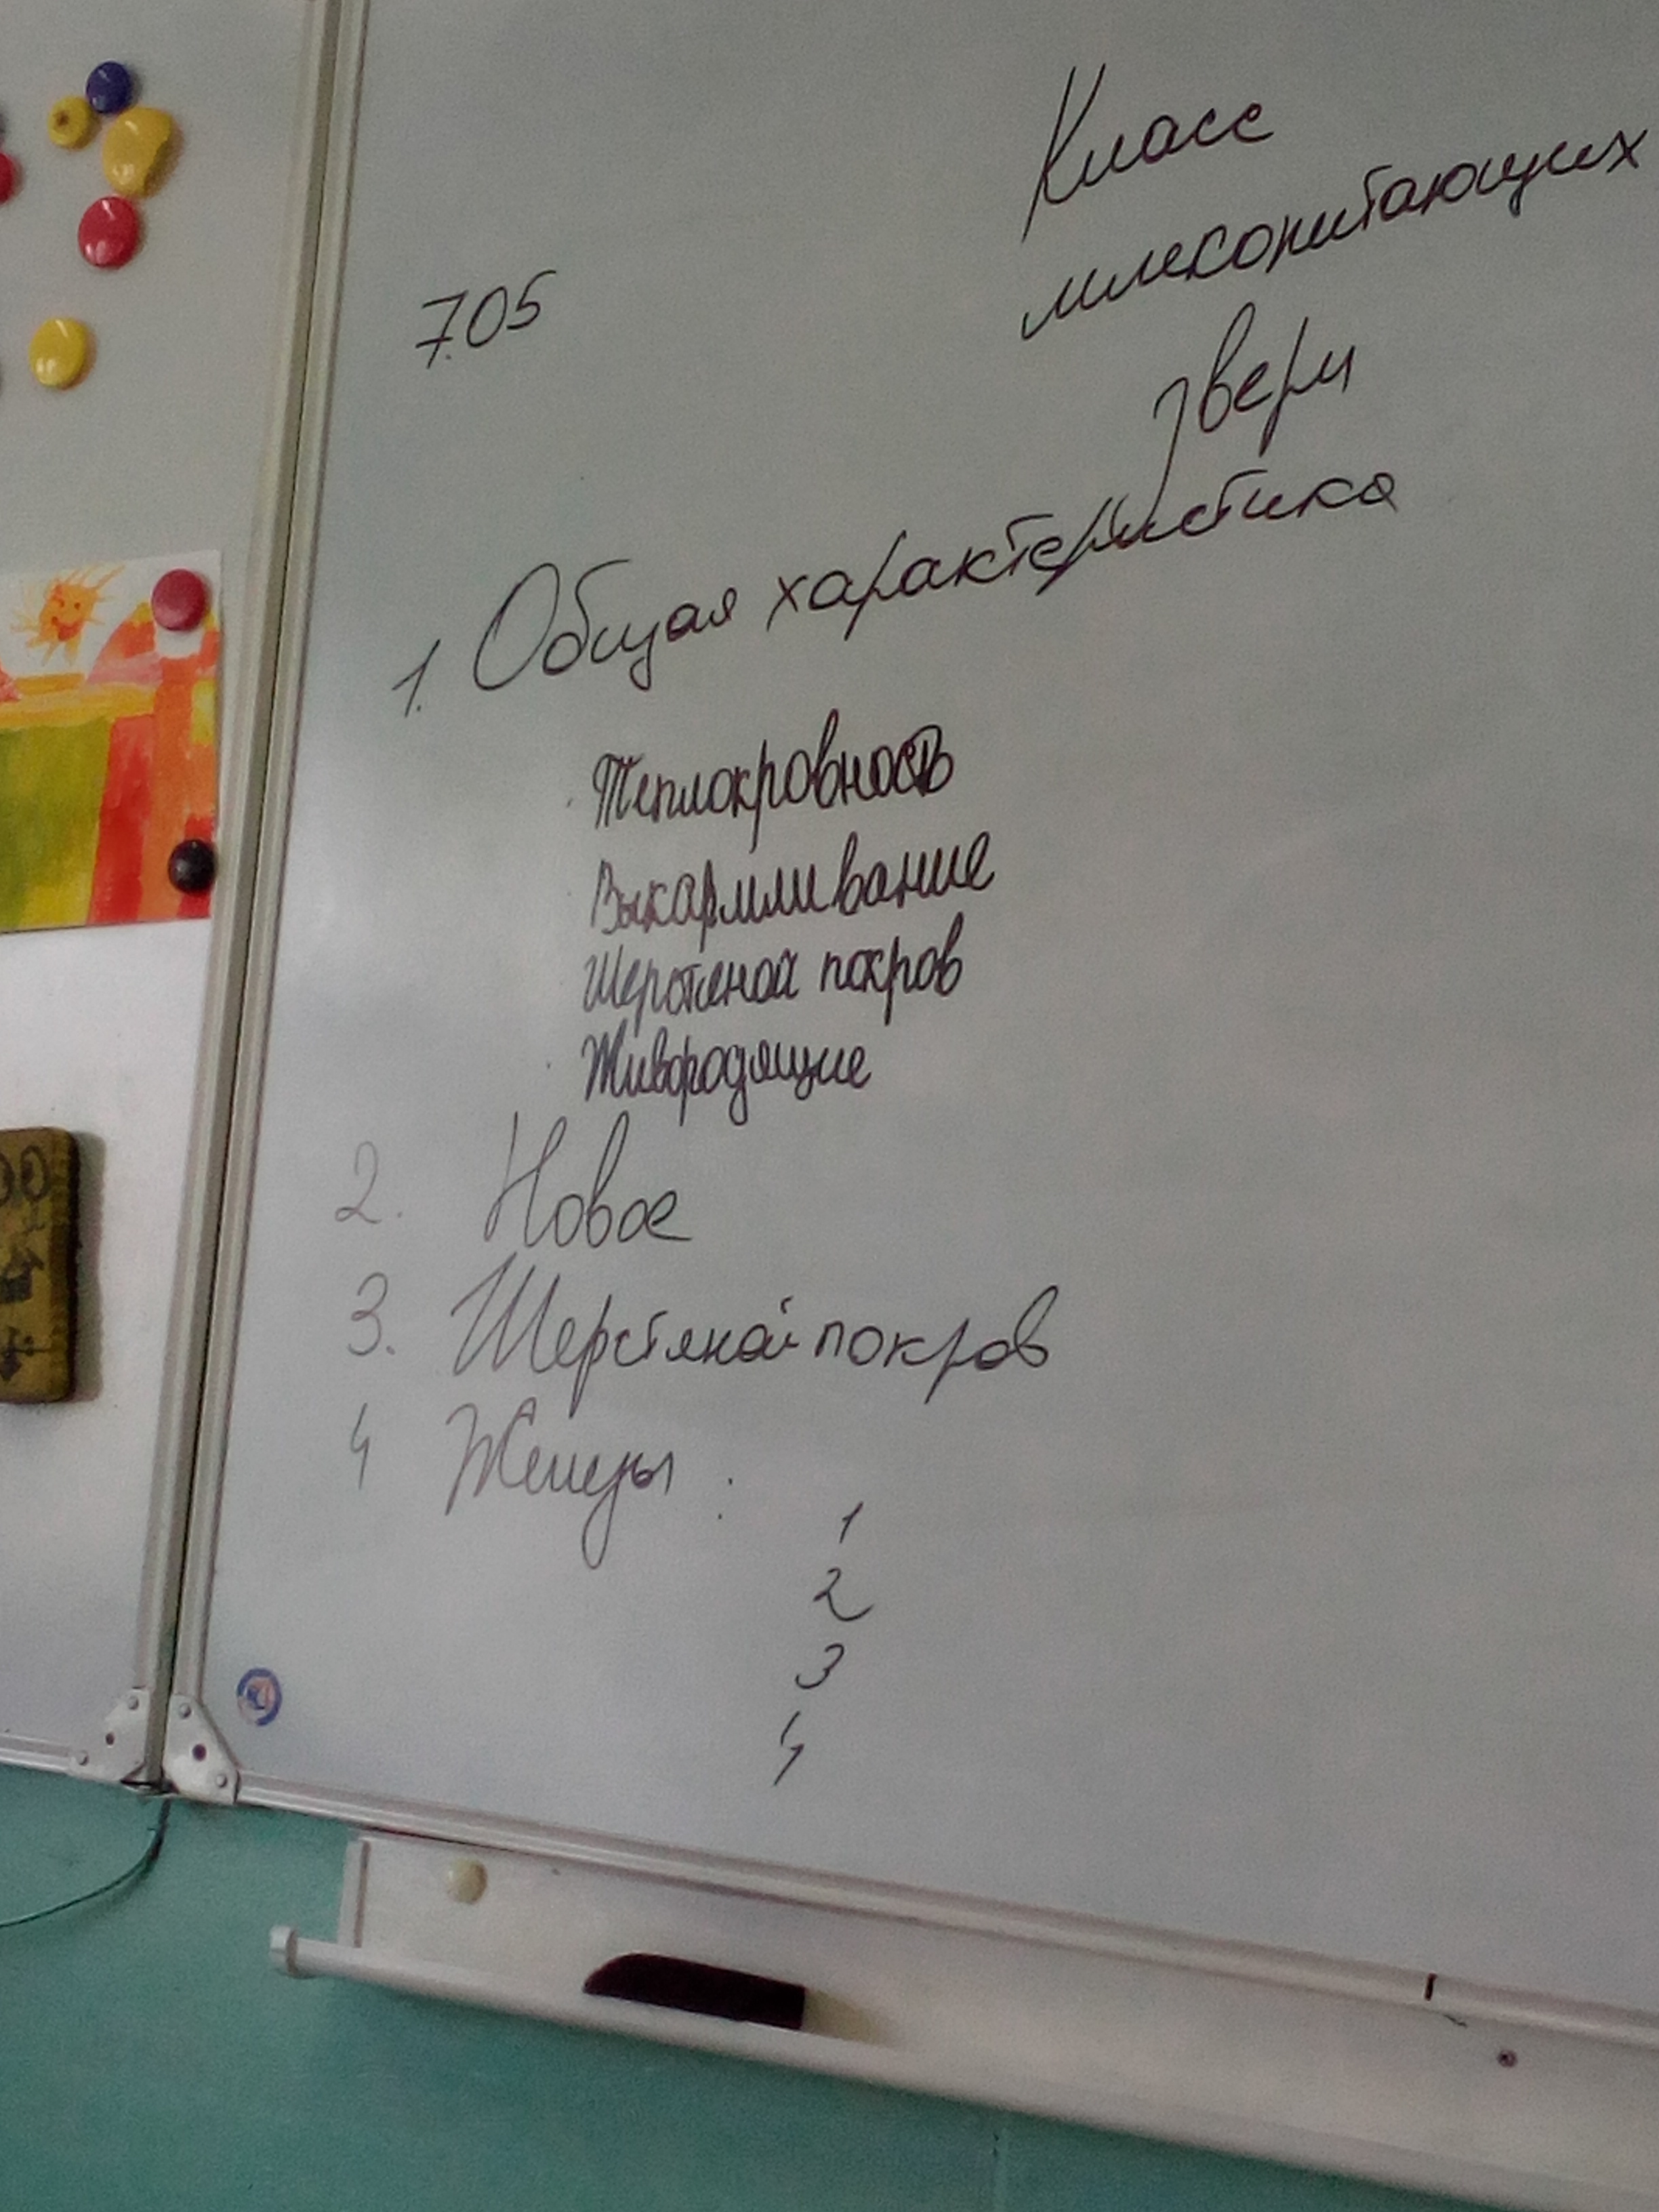 Класс
млекопитающих
7.05
звери
1. Общая характеристика
Теплокровность
Выкармливание
Шерстяной покров
Живородящие
2. Новое
3. Шерстяной покров
4 Железы :
1
2
3
4